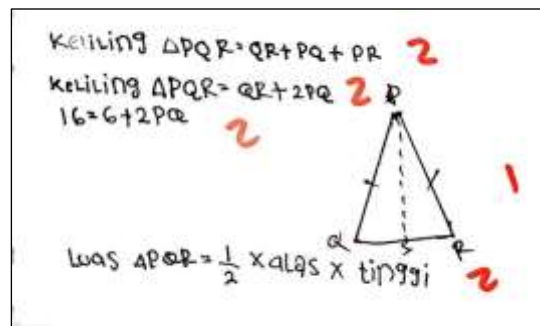 Keliling ΔPQR = QR + PQ + PR 2
Keliling ΔPQR = QR + 2PQ 2
16 = 6 + 2PQ 2
P
1
Q S R
Luas ΔPQR = 1/2 × alas × tinggi 2